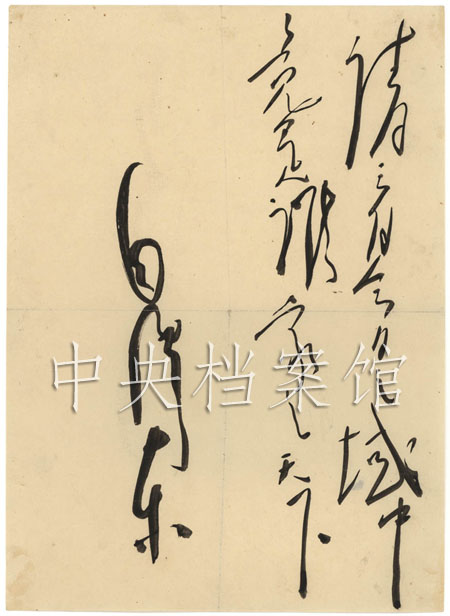 请看今日之域中
竟是谁家之天下
毛泽东
中央档案馆